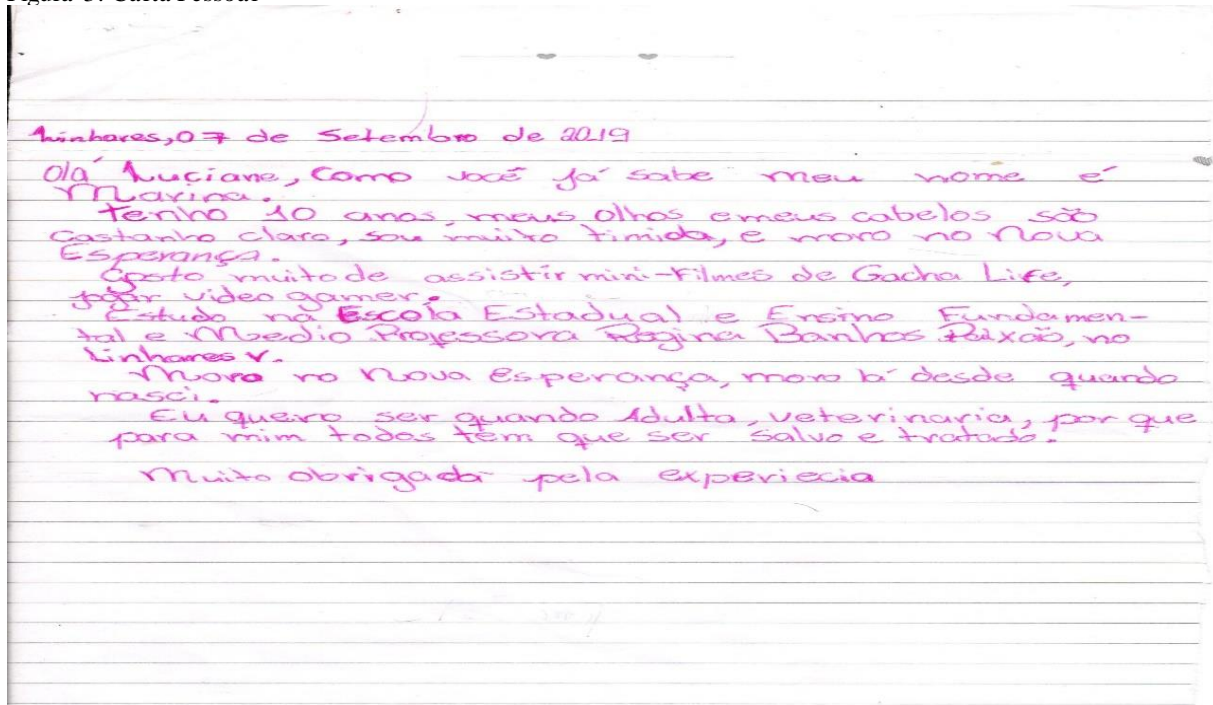 Linhares, 07 de Setembro de 2019
Olá Luciane, Como você já sabe meu nome é
Marina.
Tenho 10 anos, meus olhos e meus cabelos são
Castanho claro, sou muito timida, e moro no Nova
Esperança.
Gosto muito de assistir mini-Filmes de Gacha Life,
jogar video gamer.
Estudo na Escola Estadual e Ensino Fundamen-
tal e Medio Professora Regina Banhos Paixão, no
Linhares V.
Moro no Nova Esperança, moro lá desde quando
nasci.
Eu queiro ser quando Adulta, veterinaria, por que
para mim todos têm que ser salvo e tratado.
Muito obrigada pela experiecia